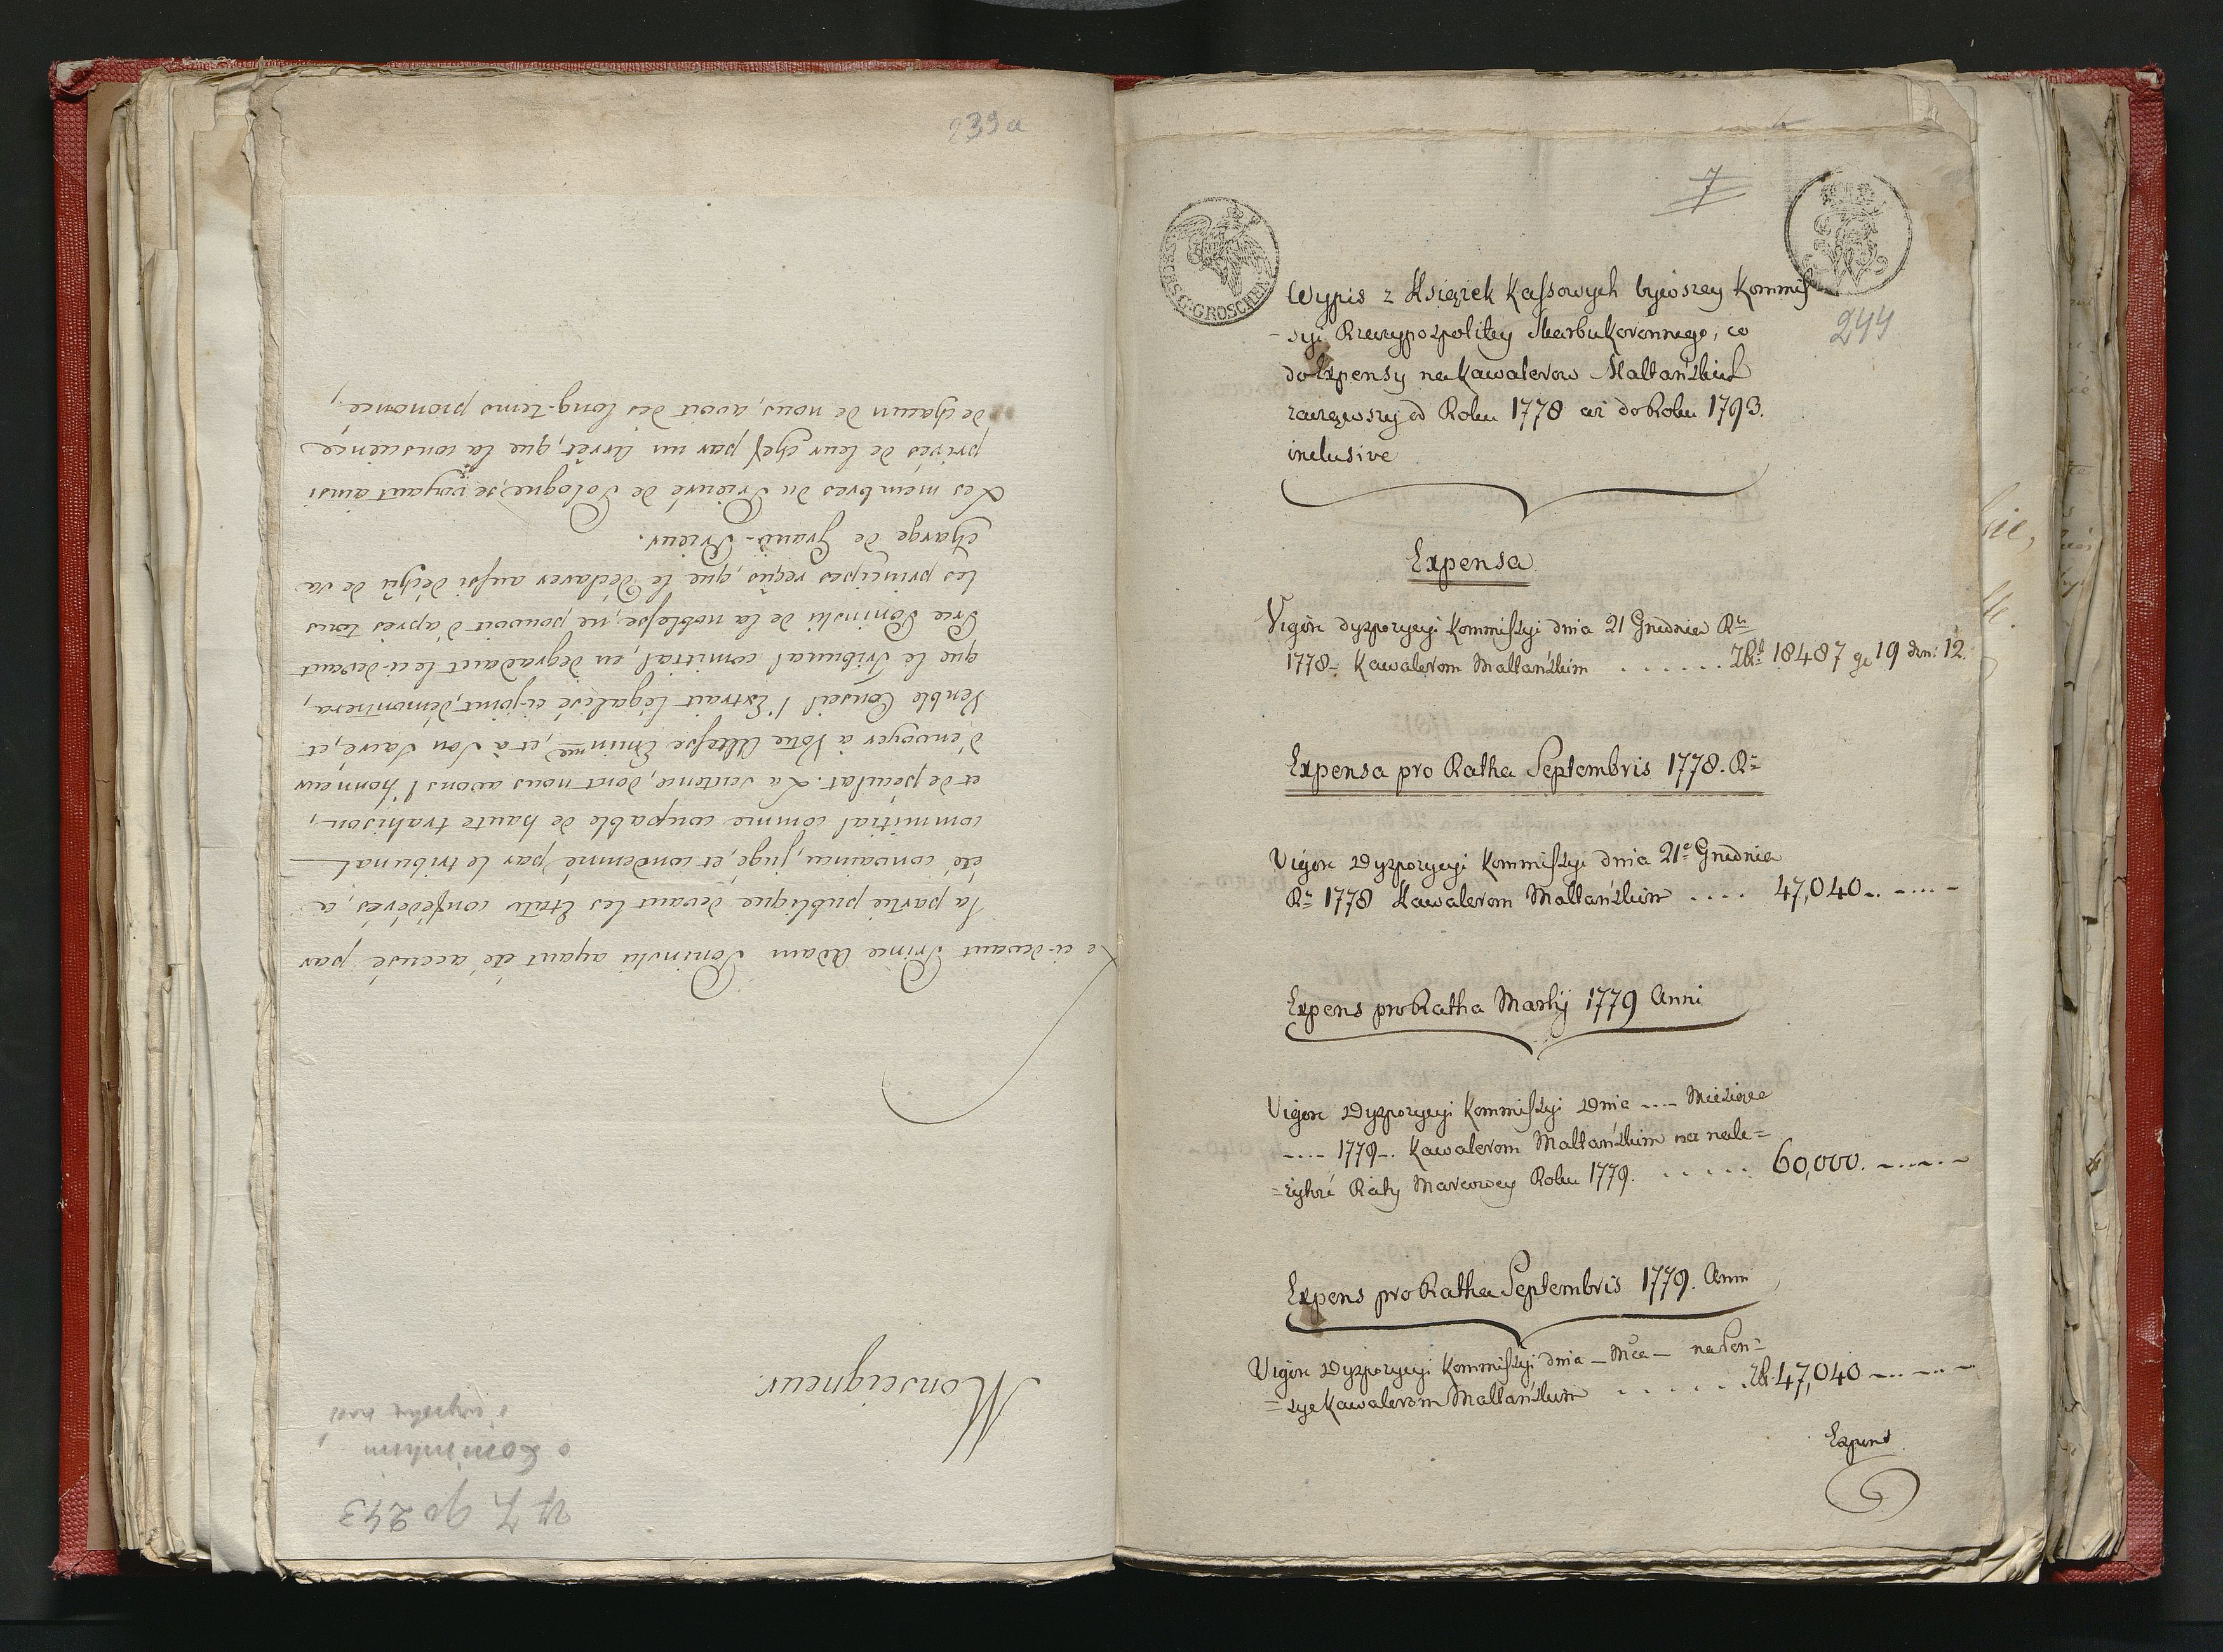 239a
Monseigneur.
Le ci-devant Prince Adam Poninski ayant été accusé par
la partie publique devant les Etats confédérés, a
été convaincu, jugé, et condemné par le tribunal
commitial comme coupable de haute trahison,
et de péculat. La sentence, dont nous avons l'honneur
d'envoyer à Votre Altesse Eminme, et à Son Sacré, et
Venble Conseil l'Extrait légalisé ci-joint, démontrera,
que le Tribunal comitial, en dégradant le ci-devant
Prce Poninski de la noblesse, ne pouvoit d'après tous
les principes reçus, que le déclarer aussi déchû de sa
charge de Grand-Prieur.
Les membres du Prieuré de Pologne, se voyant ainsi
privés de leur chef par un Arrêt, que la conscience
de chacun de nous, avoit dès long-tems prononcé,
243
7
SECHS G. GROSCHEN
244
Wypis z Xsiążek Kassowych bywszey Kommis
-syi Rzeczypospolitey Skarbu Koronnego, co
do Expensy na Kawalerow Maltańskich
zaszey od Roku 1778 aż do Roku 1793.
inclusive
Expensa.
Vigore dyspozycyi Kommissyi dnia 21 Grudnia Ru
1778. Kawalerom Maltańskim . . . . . . Złł 18487 gr 19 den: 12.
Expensa pro Ratha Septembris 1778. R=
Vigore Dyspozycyi Kommissyi dnia 21e Grudnia
R= 1778 Kawalerom Maltańskim . . . . 47,040.. -...-
Expens pro Ratha Martij 1779 Anni
Vigore Dyspozycyi Kommissyi Dnia ---- Miesiąca
---- 1779-. Kawalerom Maltańskim na nale=
=żytość Raty Marcowey Roku 1779. . . . . . 60,000. -...-
Expens pro Ratha Septembris 1779. Anni
Vigore Dyspozycyi Kommissyi dnia - Mca - na Pen=
=sye Kawalerom Maltańskim . . . . . . Zł. 47,040 -...-
Expens